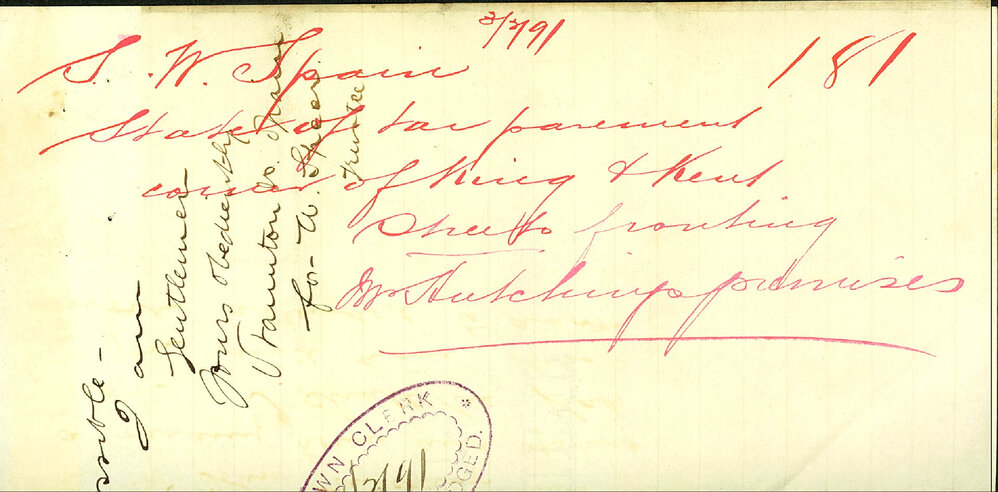 2/2/91
S. W. Spain 181
State of tar pavement
corner of King & Kent
Streets fronting
Mr Hutchings premises
ssible -
I am
Gentlemen
Yours obediently
Staunton & Spain
for W. Speer
Trustee
WN CLERK *
2/91
DGED.